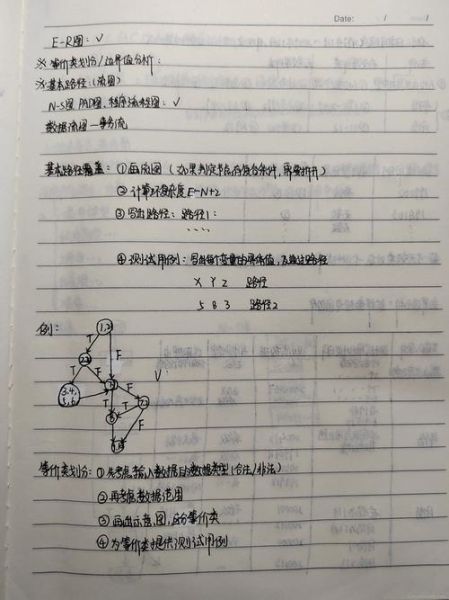 Date: / /
E-R图: √
※ 等价类划分/边界值分析:
※ 基本路径:(流图)
N-S图 PAD图、程序流程图: √
数据流图—事务流
基本路径覆盖: ① 画流图 (如果判定节点有复合条件,需要拆开)
② 计算环复杂度 E-N+2
③ 写出路径: 路径1:
....
④ 测试用例: 写出每个变量的具体值,及通过路径
X Y Z 路径
5 8 3 路径2
例:
1,2
T F
T F
3,4,
√
T F
T F
等价类划分: ① 先考虑输入数据的数据类型(合法/非法)
② 再考虑数据范围
③ 画出示意图,划分等价类
④ 为等价类提供测试用例